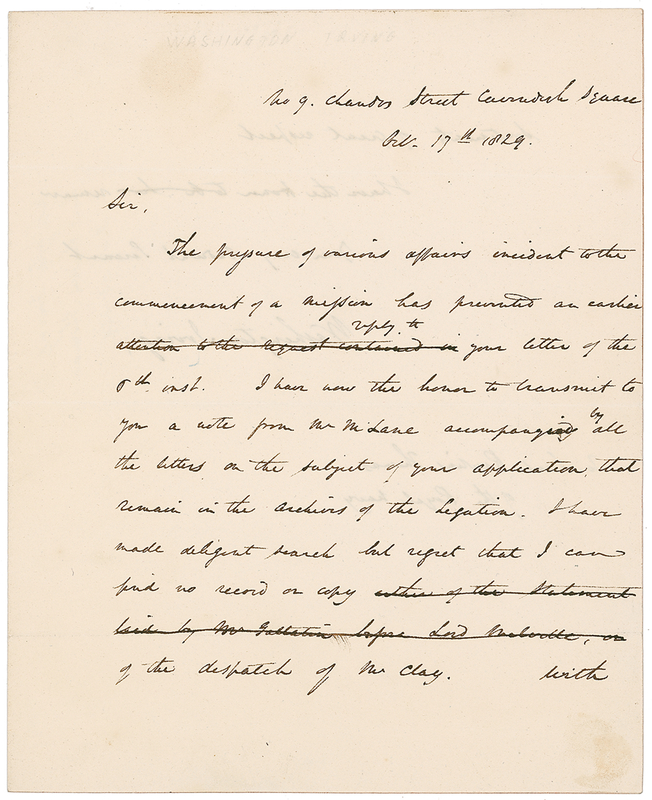 WASHINGTON IRVING
No 9. Chandos Street Cavendish Square
Oct. 17th 1829.
Sir,
The pressure of various affairs incident to the
commencement of a mission has prevented an earlier
reply to
attention to the request contained in your letter of the
8th inst. I have now the honor to transmit to
you a note from Mr McLane accompanied by all
the letters on the subject of your application, that
remain in the archives of the Legation. I have
made diligent search but regret that I can
find no record or copy either of the Statement
laid by Mr Gallatin before Lord Melville, or
of the despatch of Mr Clay. With